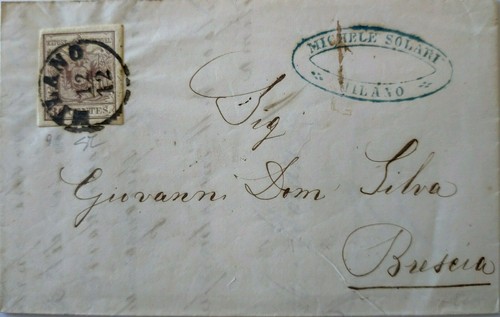 MILANO
12
12
CENTES.
MICHELE SOLARI
MILANO
Sig
Giovanni Dom Silva
Brescia